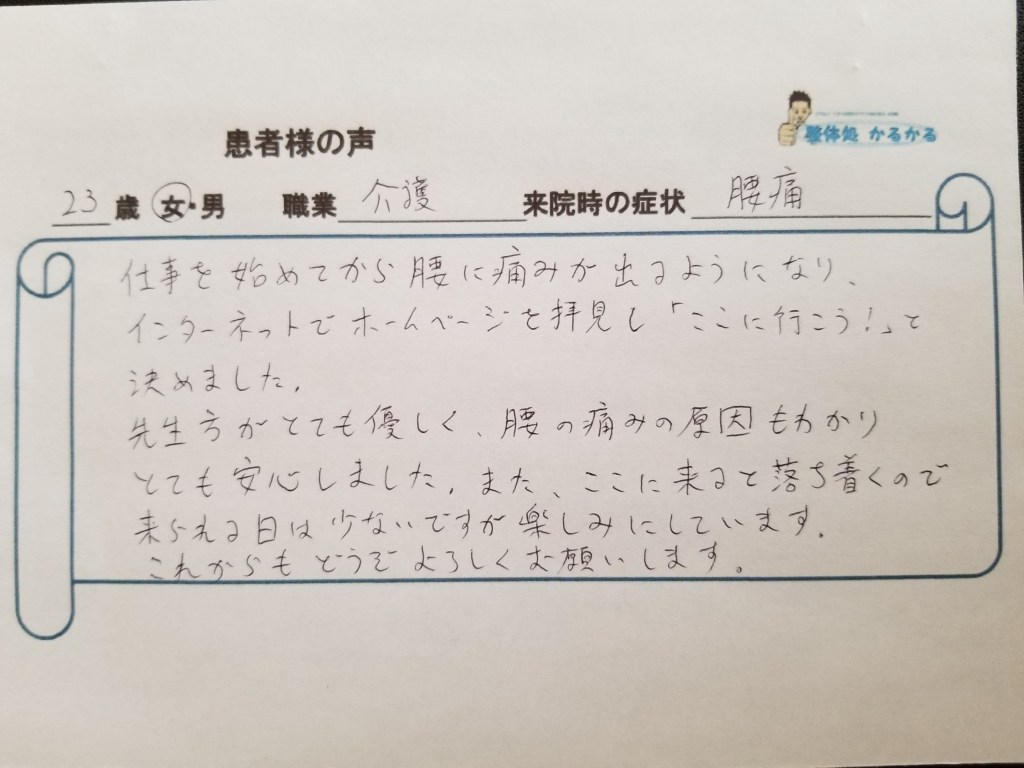 患者様の声
整体処 かるかる
23 歳 女・男 職業 介護 来院時の症状 腰痛
仕事を始めてから腰に痛みが出るようになり、
インターネットでホームページを拝見し「ここに行こう!」と
決めました。
先生方がとても優しく、腰の痛みの原因もわかり
とても安心しました。また、ここに来ると落ち着くので
来られる日は少ないですが楽しみにしています。
これからもどうぞよろしくお願いします。